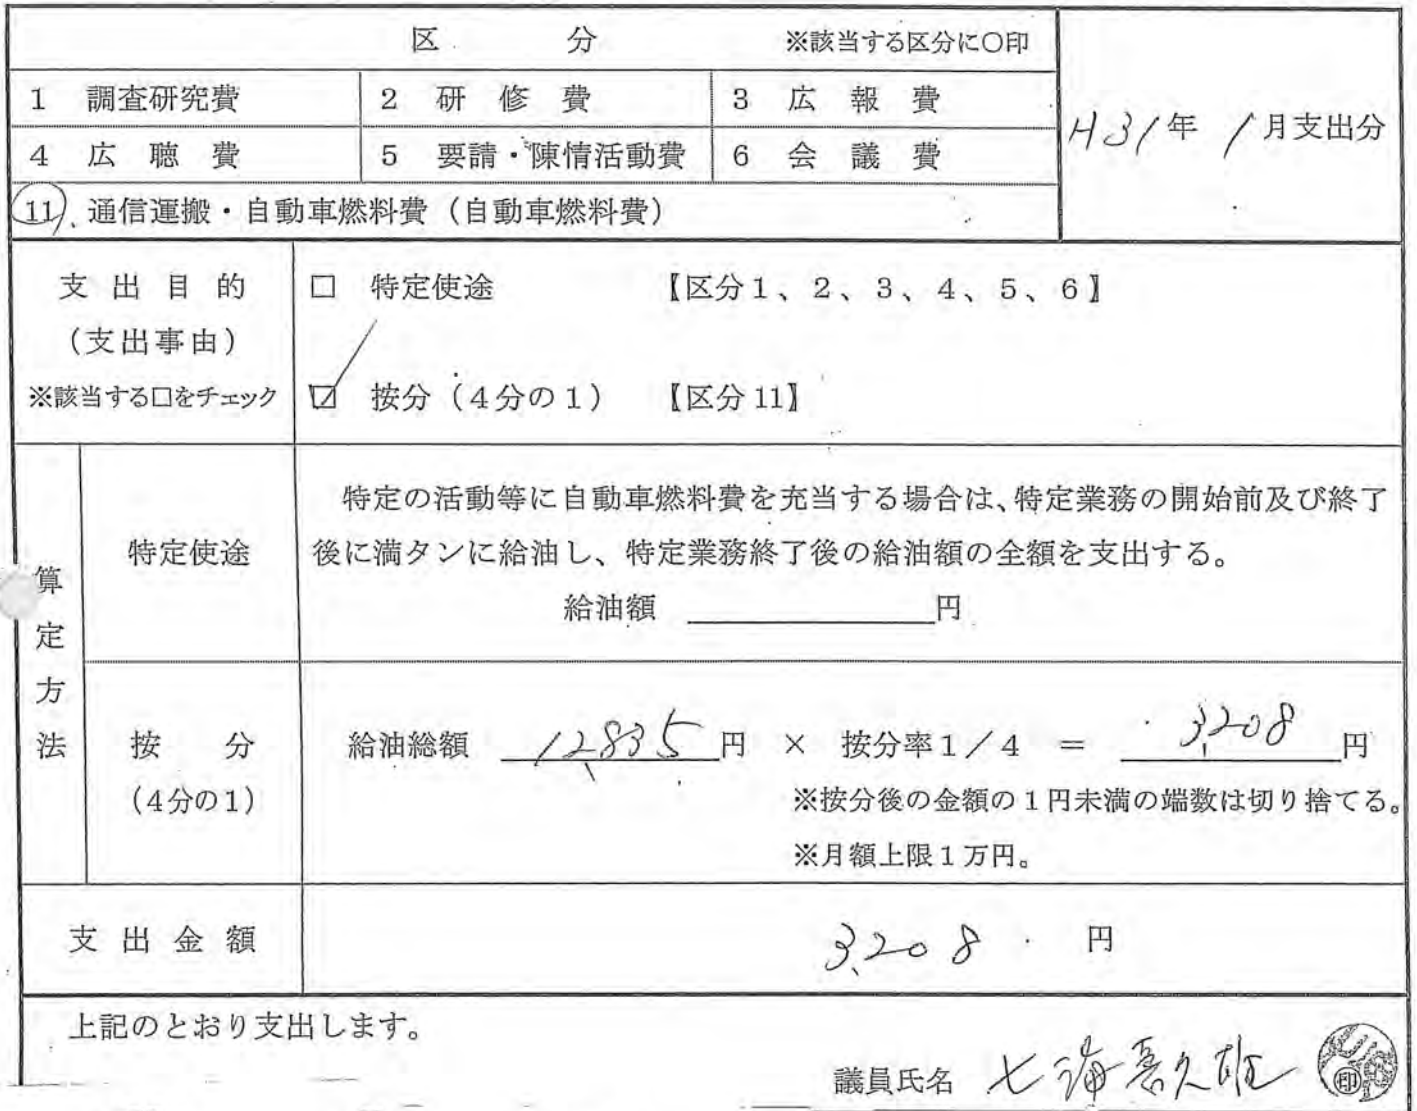 区　　　分　　　※該当する区分に〇印
1　調査研究費　2　研修費　3　広報費
H31年　1月支出分
4　広聴費　5　要請・陳情活動費　6　会議費
11　通信運搬・自動車燃料費（自動車燃料費）
支出目的
（支出事由）
※該当する□をチェック
□　特定使途　【区分1、2、3、4、5、6】
☑　按分（4分の1）　【区分11】
算定方法
特定使途
特定の活動等に自動車燃料費を充当する場合は、特定業務の開始前及び終了
後に満タンに給油し、特定業務終了後の給油額の全額を支出する。
給油額　　　　　円
按　分
（4分の1）
給油総額　12,835円　×　按分率1／4　＝　3,208円
※按分後の金額の1円未満の端数は切り捨てる。
※月額上限1万円。
支出金額　3,208　円
上記のとおり支出します。
議員氏名　七海喜久雄　印